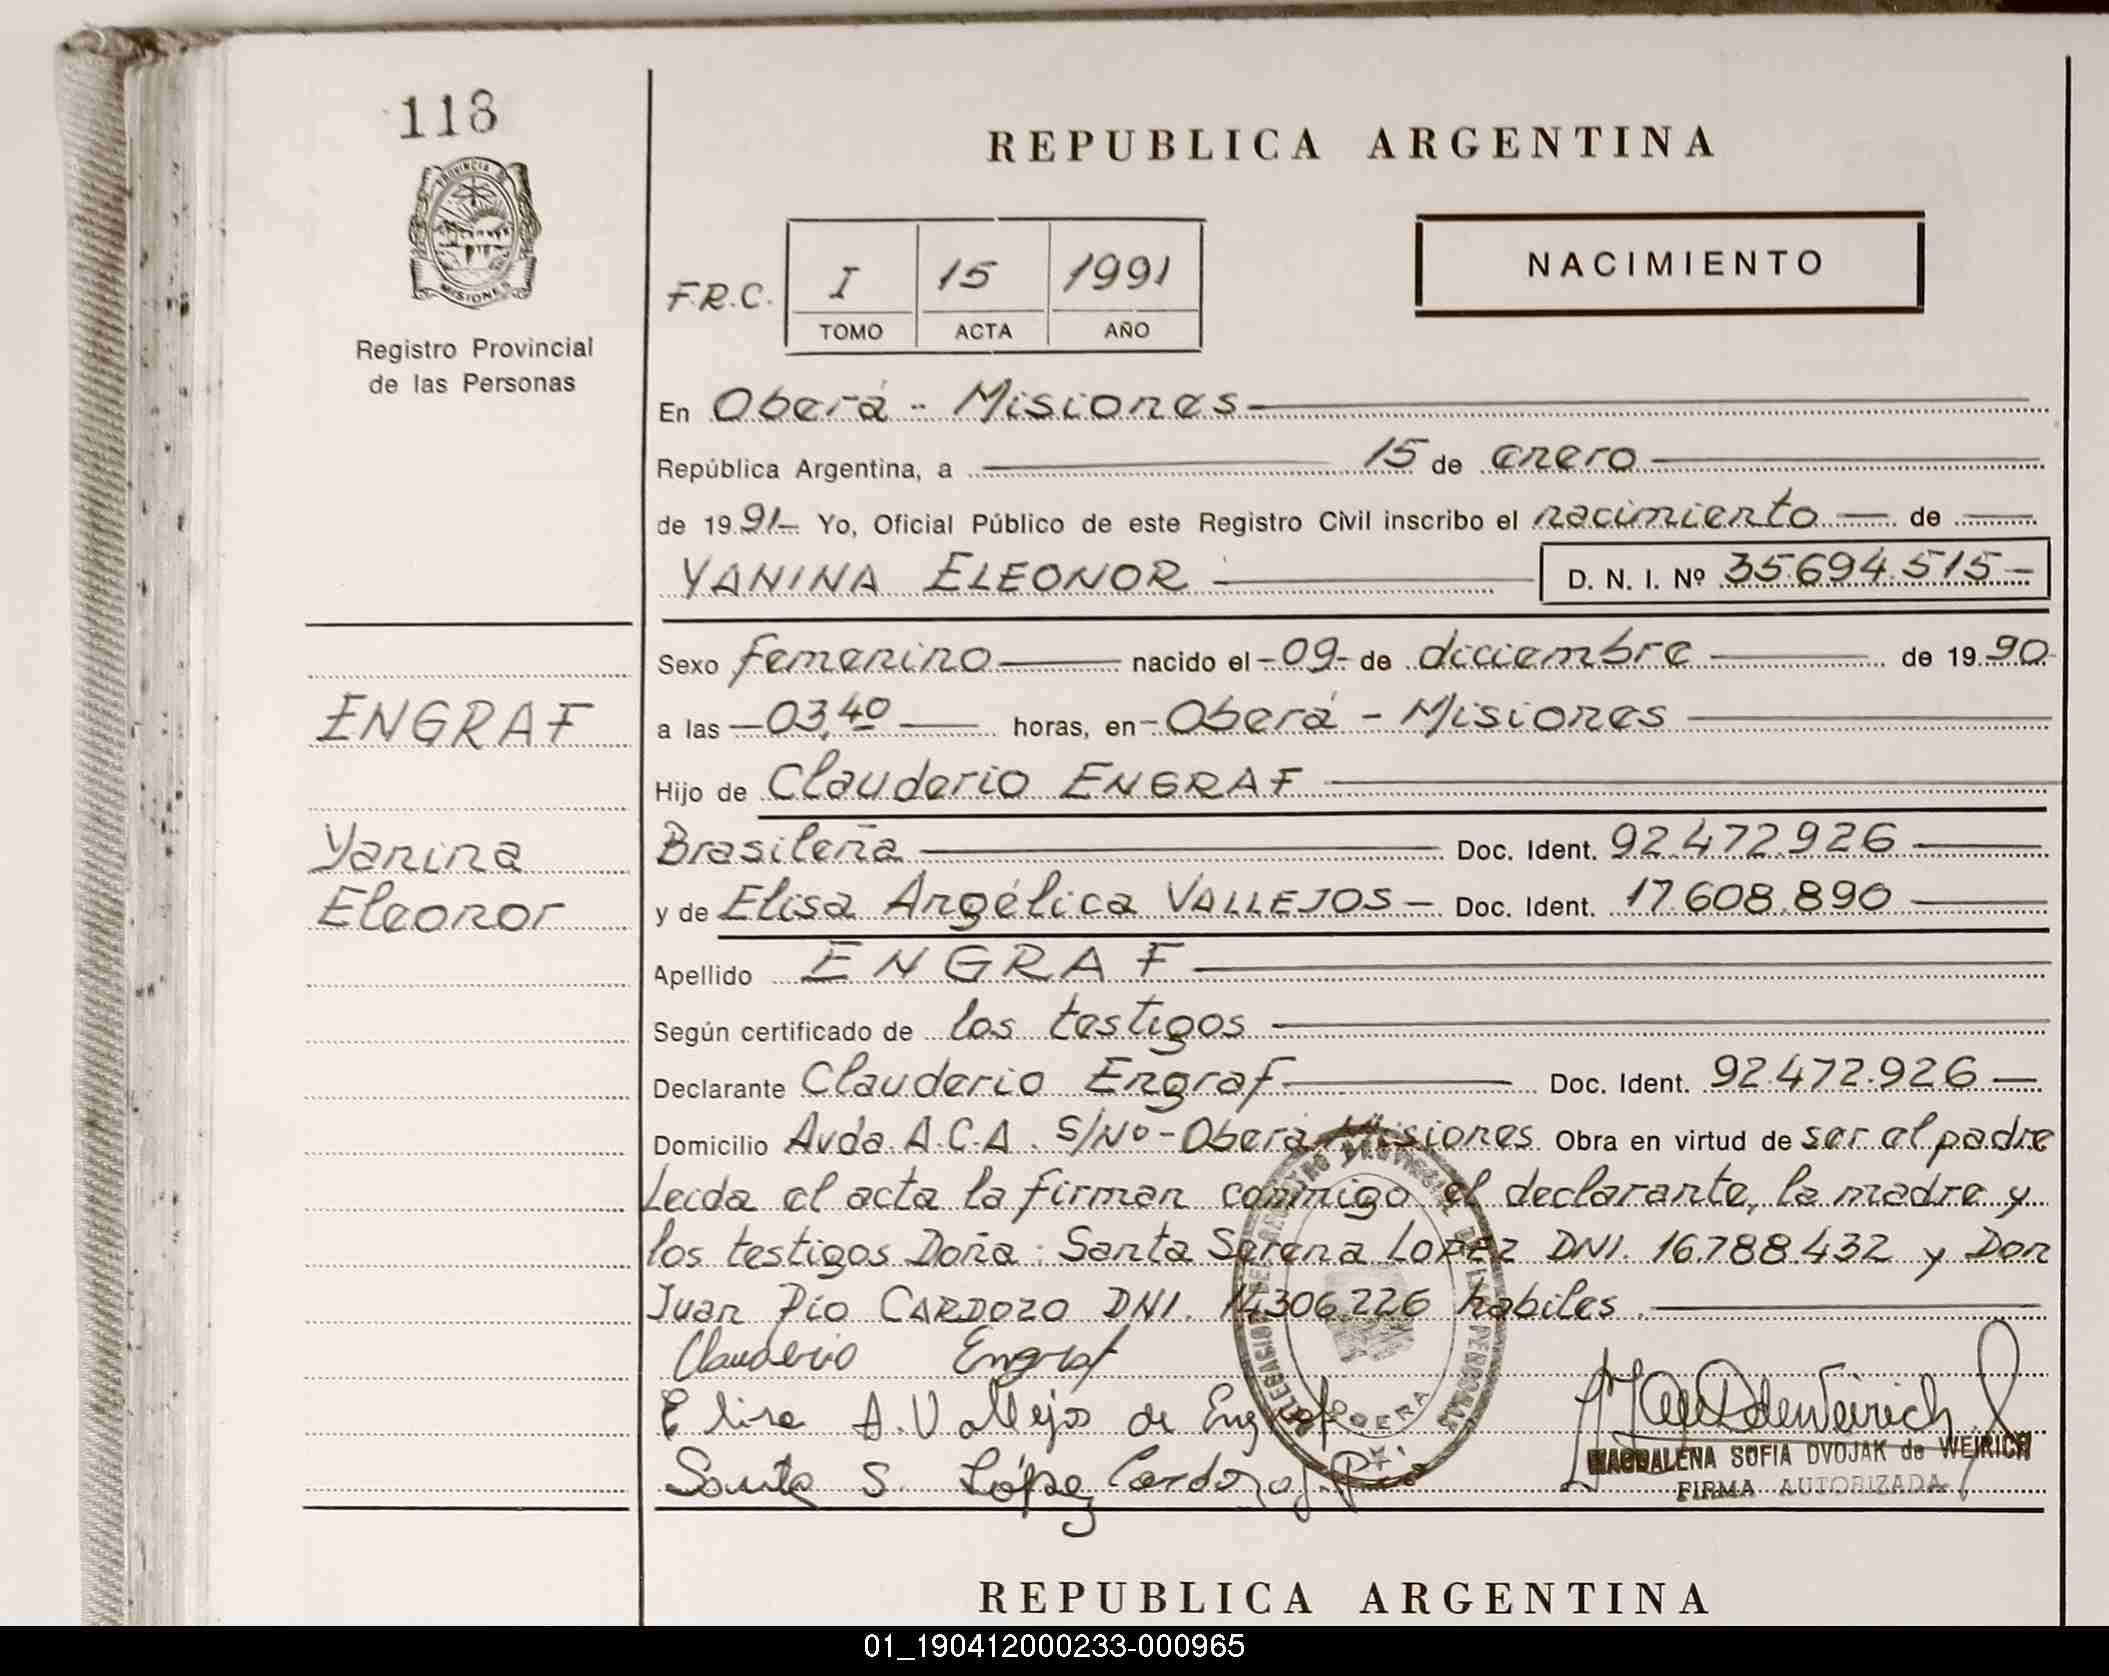 118
PROVINCIA DE
MISIONES
Registro Provincial
de las Personas
REPUBLICA ARGENTINA
NACIMIENTO
F.R.C. I 15 1991
TOMO ACTA AÑO
En Oberá - Misiones
República Argentina, a 15 de enero
de 1991 Yo, Oficial Público de este Registro Civil inscribo el nacimiento de
YANINA ELEONOR D. N. I. Nº 35.694.515-
Sexo femenino nacido el -09- de diciembre de 1990
a las 03,40 horas, en - Oberá - Misiones
Hijo de Clauderio ENGRAF
Brasileña Doc. Ident. 92.472.926
y de Elisa Angélica VALLEJOS - Doc. Ident. 17.608.890
Apellido ENGRAF
Según certificado de los testigos
Declarante Clauderio Engraf Doc. Ident. 92.472.926
Domicilio Avda. A.C.A. S/Nº - Oberá Misiones Obra en virtud de ser el padre
Leida el acta la firman conmigo el declarante, la madre y
los testigos Doña: Santa Serena LOPEZ DNI. 16.788.432 y Don
Juan Pío CARDOZO DNI. 14.306.226 hábiles.
Clauderio Engraf
Elisa A. Vallejos de Engraf
Santa S. López Cardozo J. Pío
ENGRAF
Yanina
Eleonor
DELEGACION DEL REGISTRO PROVINCIAL DE LAS PERSONAS
OBERA
MAGDALENA SOFIA DVOJAK de WEIRICH
FIRMA AUTORIZADA
REPUBLICA ARGENTINA
01_190412000233-000965